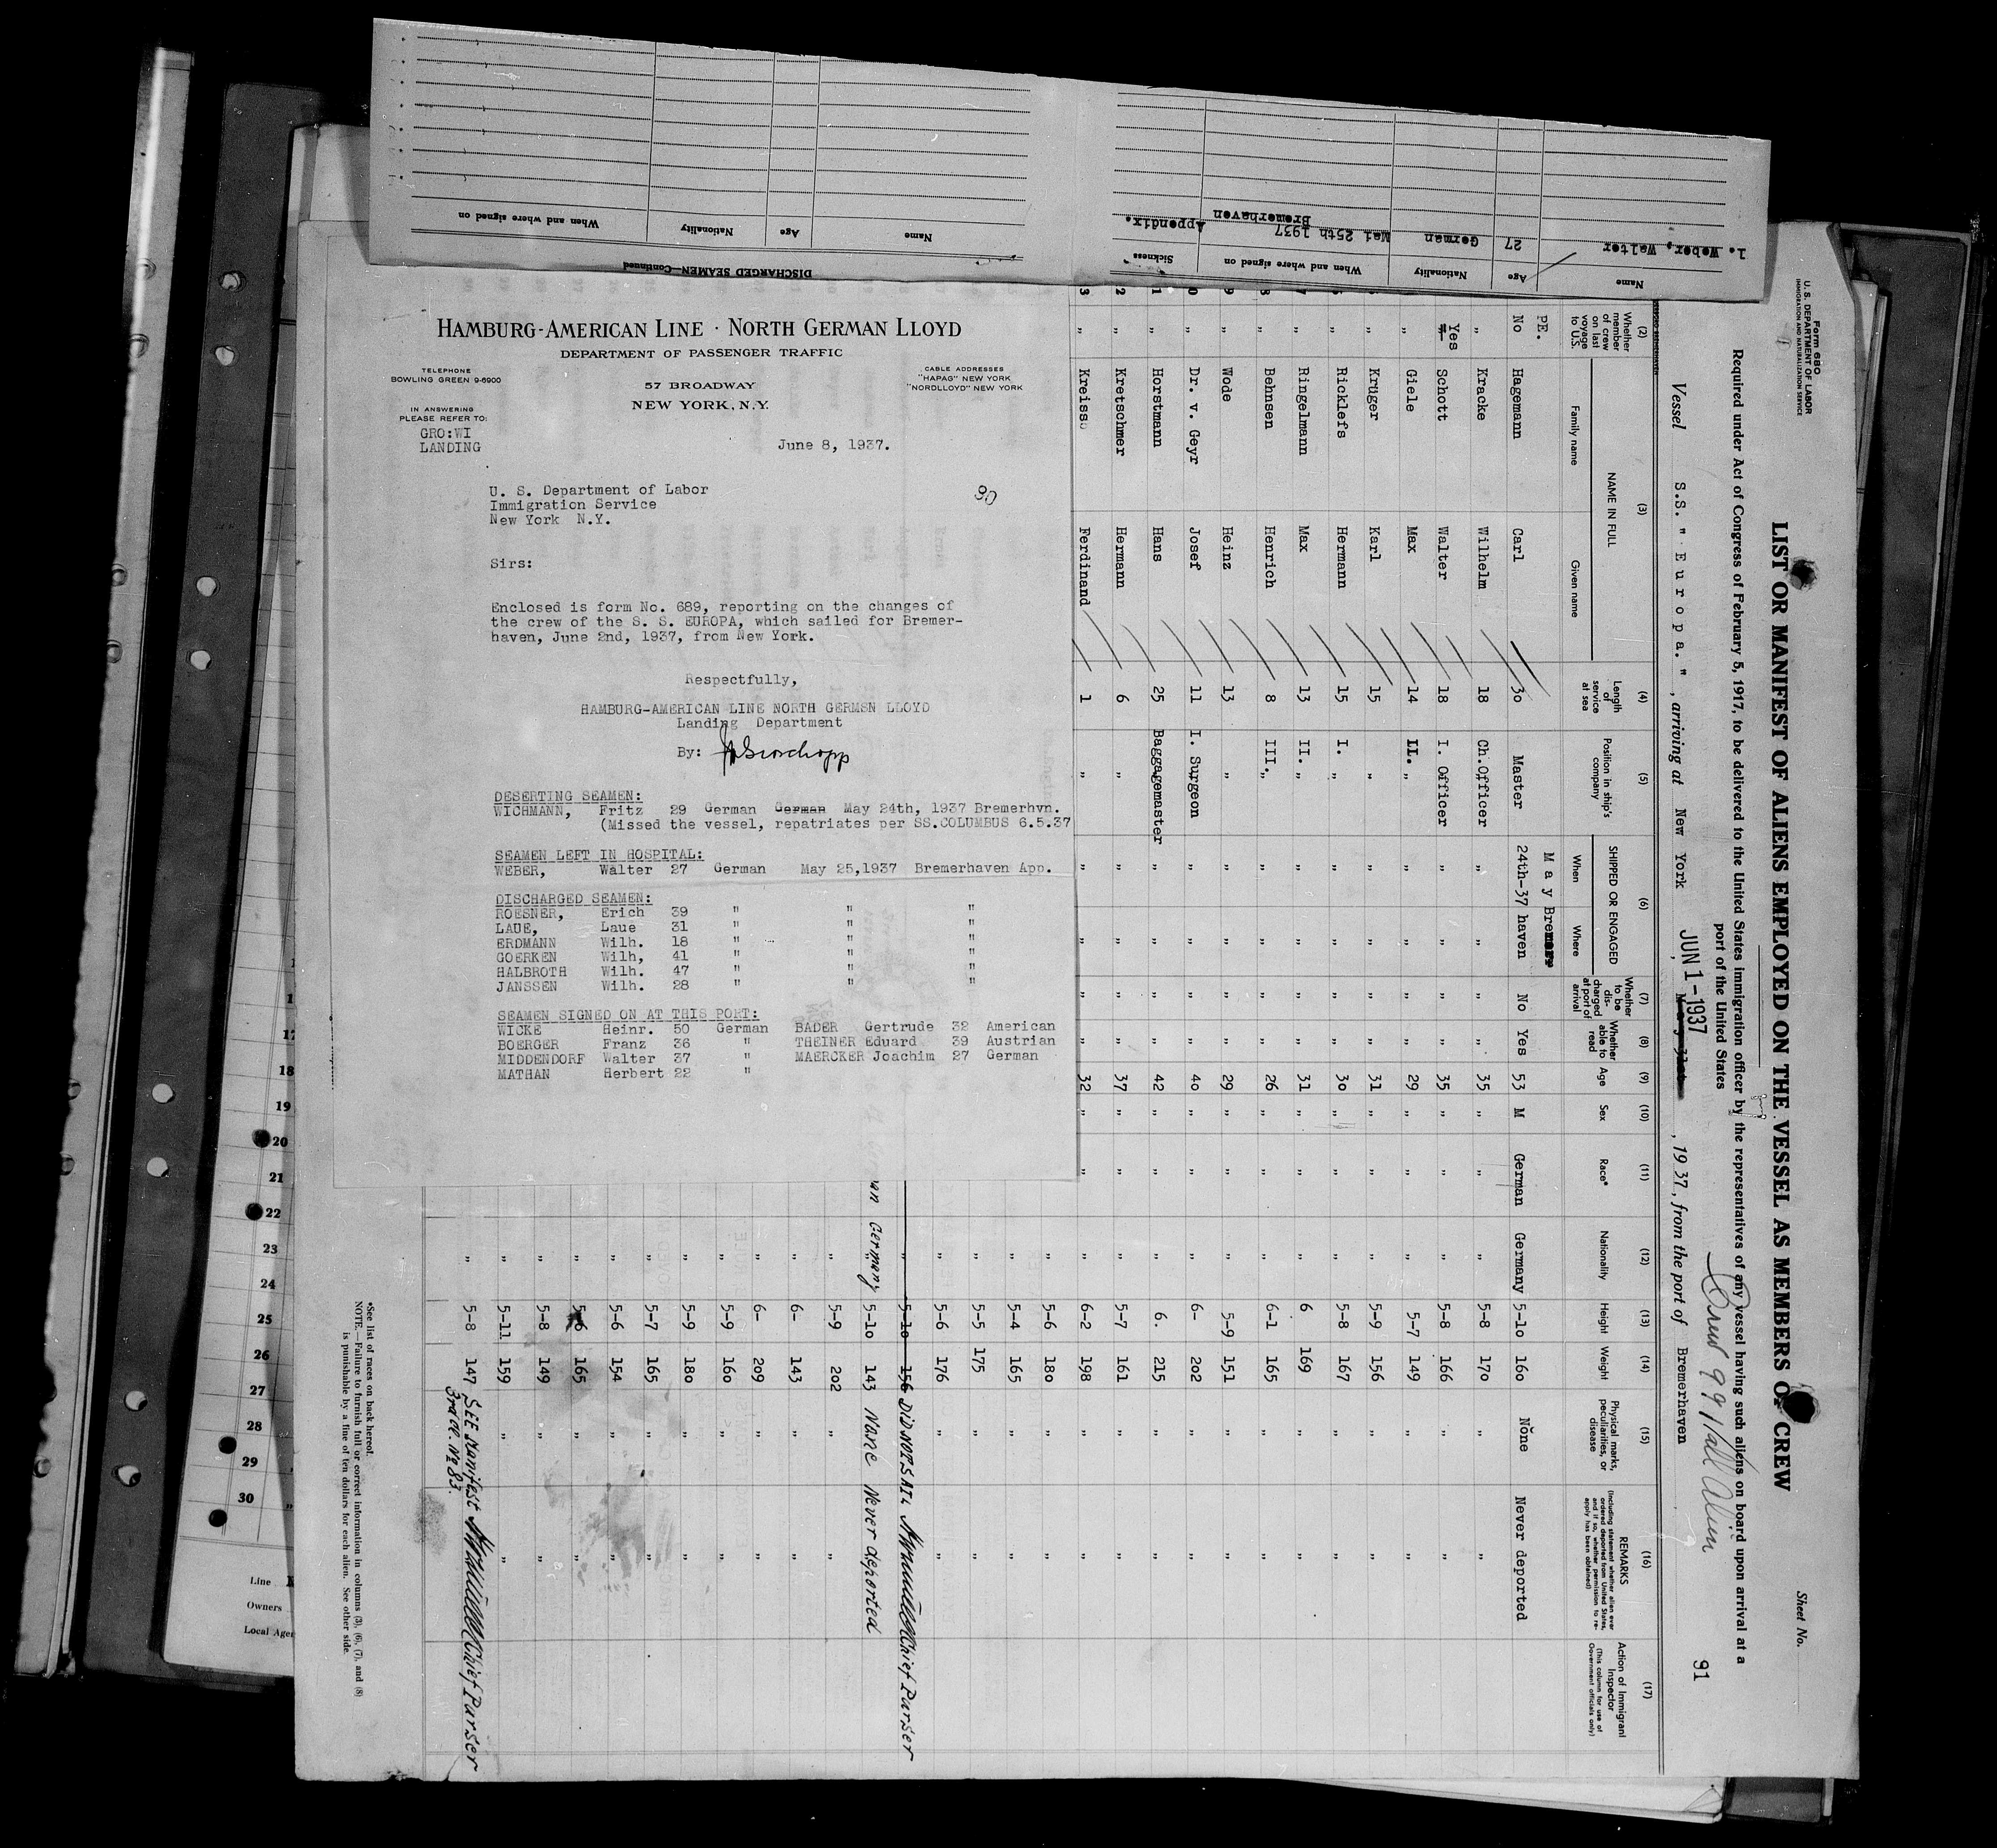 DISCHARGED SEAMEN—Continued
Name Age Nationality When and where signed on
Name Age Nationality When and where signed on Sickness
1. Weber, Walter 27 German Mai 25th 1937 Appendix.
Bremerhaven
HAMBURG-AMERICAN LINE · NORTH GERMAN LLOYD
DEPARTMENT OF PASSENGER TRAFFIC
TELEPHONE
BOWLING GREEN 9-6900
57 BROADWAY
NEW YORK, N.Y.
CABLE ADDRESSES
"HAPAG" NEW YORK
"NORDLLOYD" NEW YORK
IN ANSWERING
PLEASE REFER TO:
GRO:WI
LANDING
June 8, 1937.
90
U. S. Department of Labor
Immigration Service
New York N.Y.
Sirs:
Enclosed is form No. 689, reporting on the changes of
the crew of the S. S. EUROPA, which sailed for Bremer-
haven, June 2nd, 1937, from New York.
Respectfully,
HAMBURG-AMERICAN LINE NORTH GERMSN LLOYD
Landing Department
By:
DESERTING SEAMEN:
WICHMANN, Fritz 29 German German May 24th, 1937 Bremerhvn.
(Missed the vessel, repatriates per SS.COLUMBUS 6.5.37
SEAMEN LEFT IN HOSPITAL:
WEBER, Walter 27 German May 25,1937 Bremerhaven App.
DISCHARGED SEAMEN:
ROESNER, Erich 39 " " "
LAUE, Laue 31 " " "
ERDMANN Wilh. 18 " " "
GOERKEN Wilh, 41 " " "
HALBROTH Wilh. 47 " " "
JANSSEN Wilh. 28 " " "
SEAMEN SIGNED ON AT THIS PORT:
WICKE Heinr. 50 German BADER Gertrude 32 American
BOERGER Franz 36 " THEINER Eduard 39 Austrian
MIDDENDORF Walter 37 " MAERCKER Joachim 27 German
MATHAN Herbert 22 "
Form 680
U. S. DEPARTMENT OF LABOR
IMMIGRATION AND NATURALIZATION SERVICE
Sheet No.
91
LIST OR MANIFEST OF ALIENS EMPLOYED ON THE VESSEL AS MEMBERS OF CREW
Required under Act of Congress of February 5, 1917, to be delivered to the United States immigration officer by the representatives of any vessel having such aliens on board upon arrival at a
port of the United States
Crew 991 all Alien
Vessel S.S. " Europa. " , arriving at New York JUN 1 - 1937 , 1937, from the port of Bremerhaven
(2) (3) (4) (5) (6) (7) (8) (9) (10) (11) (12) (13) (14) (15) (16) (17)
Whether member of crew on last voyage to U.S.
NAME IN FULL
Family name Given name
Length of service at sea
Position in ship's company
SHIPPED OR ENGAGED
When Where
Whether to be discharged at port of arrival
Whether able to read
Age
Sex
Race*
Nationality
Height
Weight
Physical marks, peculiarities, or disease
REMARKS
(Including statement whether alien ever ordered deported from United States, and if so, whether permission to reapply has been obtained)
Action of Immigrant Inspector
(This column for use of Government officials only)
PE. May Bremer
No Hagemann Carl 30 Master 24th-37 haven No Yes 53 M German Germany 5-10 160 None Never deported
" Kracke Wilhelm 18 Ch.Officer " " " " 35 " " " 5-8 170 " "
Yes Schott Walter 18 I. Officer " " " " 35 " " " 5-8 166 " "
" Giele Max 14 II. " " " " " 29 " " " 5-7 149 " "
" Krüger Karl 15 " " " " " 31 " " " 5-9 156 " "
" Ricklefs Hermann 15 I. " " " " " 30 " " " 5-8 167 " "
" Ringelmann Max 13 II. " " " " " 31 " " " 6 169 " "
" Behnsen Henrich 8 III. " " " " " 26 " " " 6-1 165 " "
" Wode Heinz 13 " " " " " 29 " " " 5-9 151 " "
" Dr. v. Geyr Josef 11 I. Surgeon " " " " 40 " " " 6- 202 " "
" Horstmann Hans 25 Baggagemaster " " " " 42 " " " 6. 215 " "
" Kretschmer Hermann 6 " " " " " 37 " " " 5-7 161 " "
" Kreiss Ferdinand 1 " " " " " 32 " " " 6-2 198 " "
" 5-6 180 " "
" 5-4 165 " "
" 5-5 175 " "
" 5-6 176 " "
" 5-10 156 DID NOT SAIL Chief Purser
Germany 5-10 143 None Never deported
" 5-9 202 " "
" 6- 143 " "
" 6- 209 " "
" 5-9 160 " "
" 5-9 180 " "
" 5-7 165 " "
" 5-6 154 " "
" 5-6 165 " "
" 5-8 149 " "
" 5-11 159 " "
" 5-8 147 SEE Manifest Chief Purser
No 83.
*See list of races on back hereof.
NOTE.—Failure to furnish full or correct information in columns (3), (6), (7), and (8)
is punishable by a fine of ten dollars for each alien. See other side.
18
19
20
21
22
23
24
25
26
27
28
29
30
Line
Owners
Local Agen